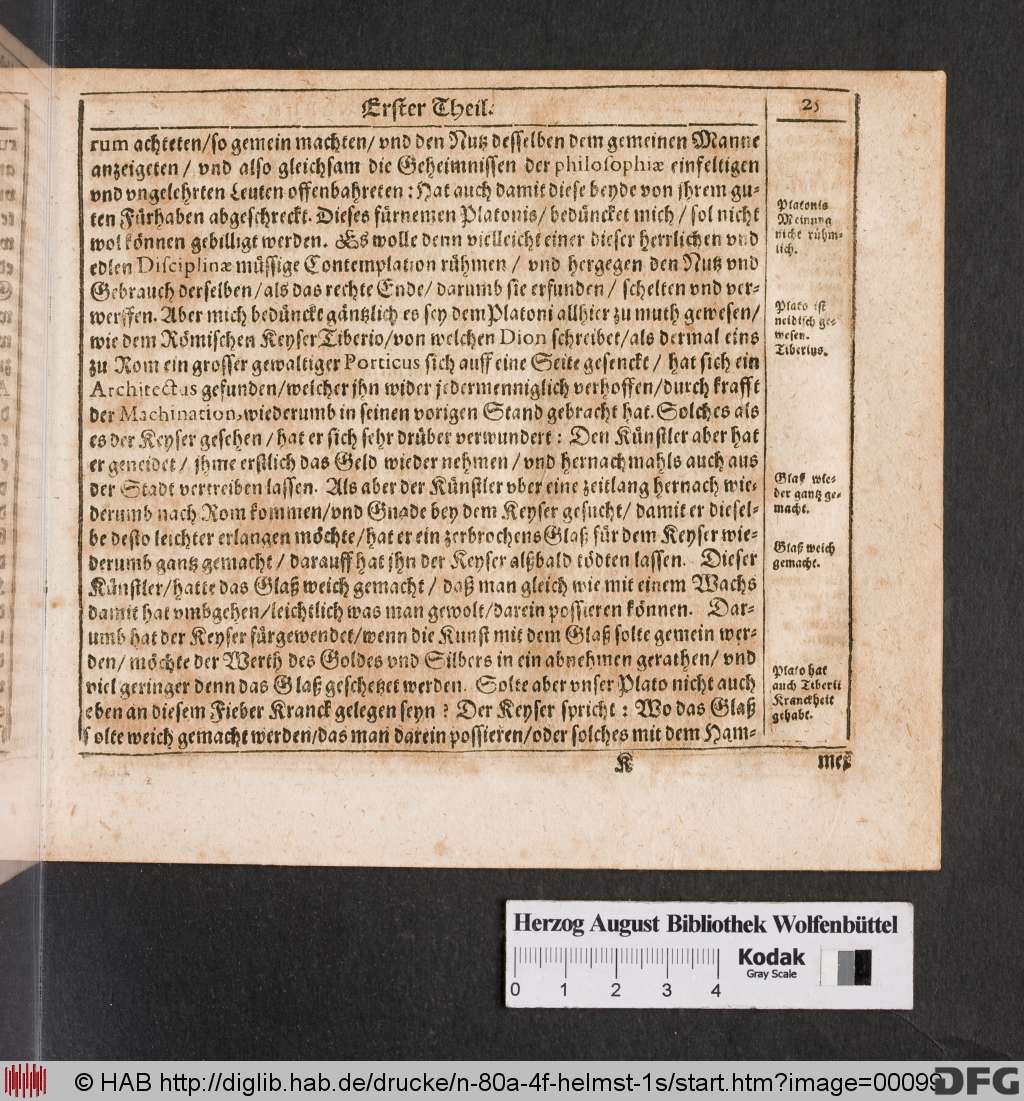 Erster Theil. 25
rum achteten/so gemein machten/ vnd den Nutz desselben dem gemeinen Manne
anzeigeten / vnd also gleichsam die Geheimnissen der philosophiæ einfeltigen
vnd vngelehrten Leuten offenbahreten : Hat auch damit diese beyde von jhrem gu-
ten Fürhaben abgeschreckt. Dieses fürnemen Platonis/ bedüncket mich / sol nicht
wol können gebilligt werden. Es wolle denn vielleicht einer dieser herrlichen vnd
edlen Disciplinæ müssige Contemplation rühmen / vnd hergegen den Nutz vnd
Gebrauch derselben/als das rechte Ende/ darumb sie erfunden / schelten vnd ver-
werffen. Aber mich bedünckt gäntzlich es sey dem Platoni allhier zu muth gewesen/
wie dem Römischen Keyser Tiberio/von welchen Dion schreibet/als dermal eins
zu Rom ein grosser gewaltiger Porticus sich auff eine Seite gesenckt / hat sich ein
Architectus gefunden/welcher jhn wider jedermenniglich verhoffen/durch krafft
der Machination, wiederumb in seinen vorigen Stand gebracht hat. Solches als
es der Keyser gesehen / hat er sich sehr drüber verwundert : Den Künstler aber hat
er geneidet / jhme erstlich das Geld wieder nehmen / vnd hernachmahls auch aus
der Stadt vertreiben lassen. Als aber der Künstler vber eine zeitlang hernach wie-
derumb nach Rom kommen/vnd Gnade bey dem Keyser gesucht/ damit er diesel-
be desto leichter erlangen möchte/hat er ein zerbrochens Glaß für dem Keyser wie-
derumb gantz gemacht / darauff hat jhn der Keyser alßbald tödten lassen. Dieser
Künstler/hatte das Glaß weich gemacht / daß man gleich wie mit einem Wachs
damit hat vmbgehen/leichtlich was man gewolt/darein possieren können. Dar-
umb hat der Keyser fürgewendet/wenn die Kunst mit dem Glaß solte gemein wer-
den/ möchte der Werth des Goldes vnd Silbers in ein abnehmen gerathen/ vnd
viel geringer denn das Glaß geschetzet werden. Solte aber vnser Plato nicht auch
eben an diesem Fieber Kranck gelegen seyn ? Der Keyser spricht : Wo das Glaß
solte weich gemacht werden/das man darein possieren/oder solches mit dem Ham-
K mer
Platonis
Meinung
nicht rühm-
lich.
Plato ist
neidisch ge-
wesen.
Tiberius.
Glaß wie-
der gantz ge-
macht.
Glaß weich
gemacht.
Plato hat
auch Tiberii
Kranckheit
gehabt.
Herzog August Bibliothek Wolfenbüttel
Kodak
Gray Scale
0 1 2 3 4
© HAB http://diglib.hab.de/drucke/n-80a-4f-helmst-1s/start.htm?image=00099
DFG